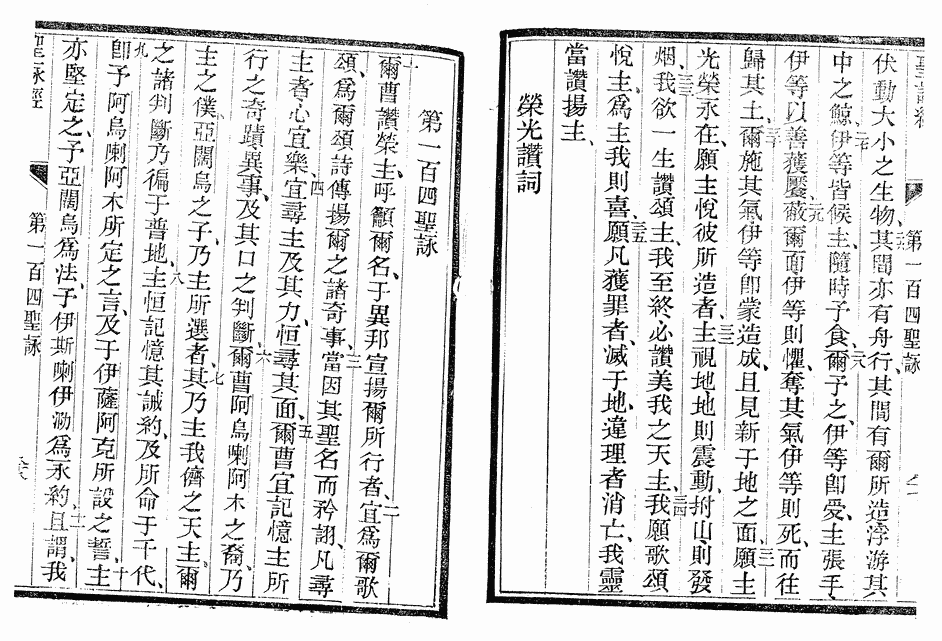 聖詠經 第一百四聖詠
伏動大小之生物、其間亦有舟行、其間有爾所造浮游其
中之鯨、伊等皆候主、隨時予食、爾予之、伊等卽受、主張手、
伊等以善獲饜、蔽爾面伊等則懼、奪其氣、伊等則死、而往
歸其土、爾施其氣、伊等卽蒙造成、且見新于地之面、願主
光榮永在、願主悅彼所造者、主視地、地則震動、拊山、則發
烟、我欲一生讚頌主、我至終必讚美我之天主、我願歌頌
悅主、為主我則喜、願凡獲罪者、滅于地、違理者消亡、我靈
當讚揚主、
榮光讚詞
第一百四聖詠
一爾曹讚榮主、呼籲爾名、于異邦宣揚爾所行者、二宜爲爾歌
頌、爲爾頌詩傳揚爾之諸奇事、三當因其聖名而矜詡、凡尋
主者、心宜樂、四宜尋主及其力、恒尋其面、五爾曹宜記憶主所
行之奇蹟異事、及其口之判斷、六爾曹阿烏喇阿木之裔、乃
主之僕、亞闊烏之子、乃主所選者、七其乃主我儕之天主、爾
之諸判斷乃徧于普地、八主恒記憶其誡約、及所命于千代、
九卽予阿烏喇阿木所定之言、及于伊薩阿克所設之誓、十主
亦堅定之、予亞闊烏爲法、予伊斯喇伊泐爲永約、十一且謂、我
聖詠經 第一百四聖詠